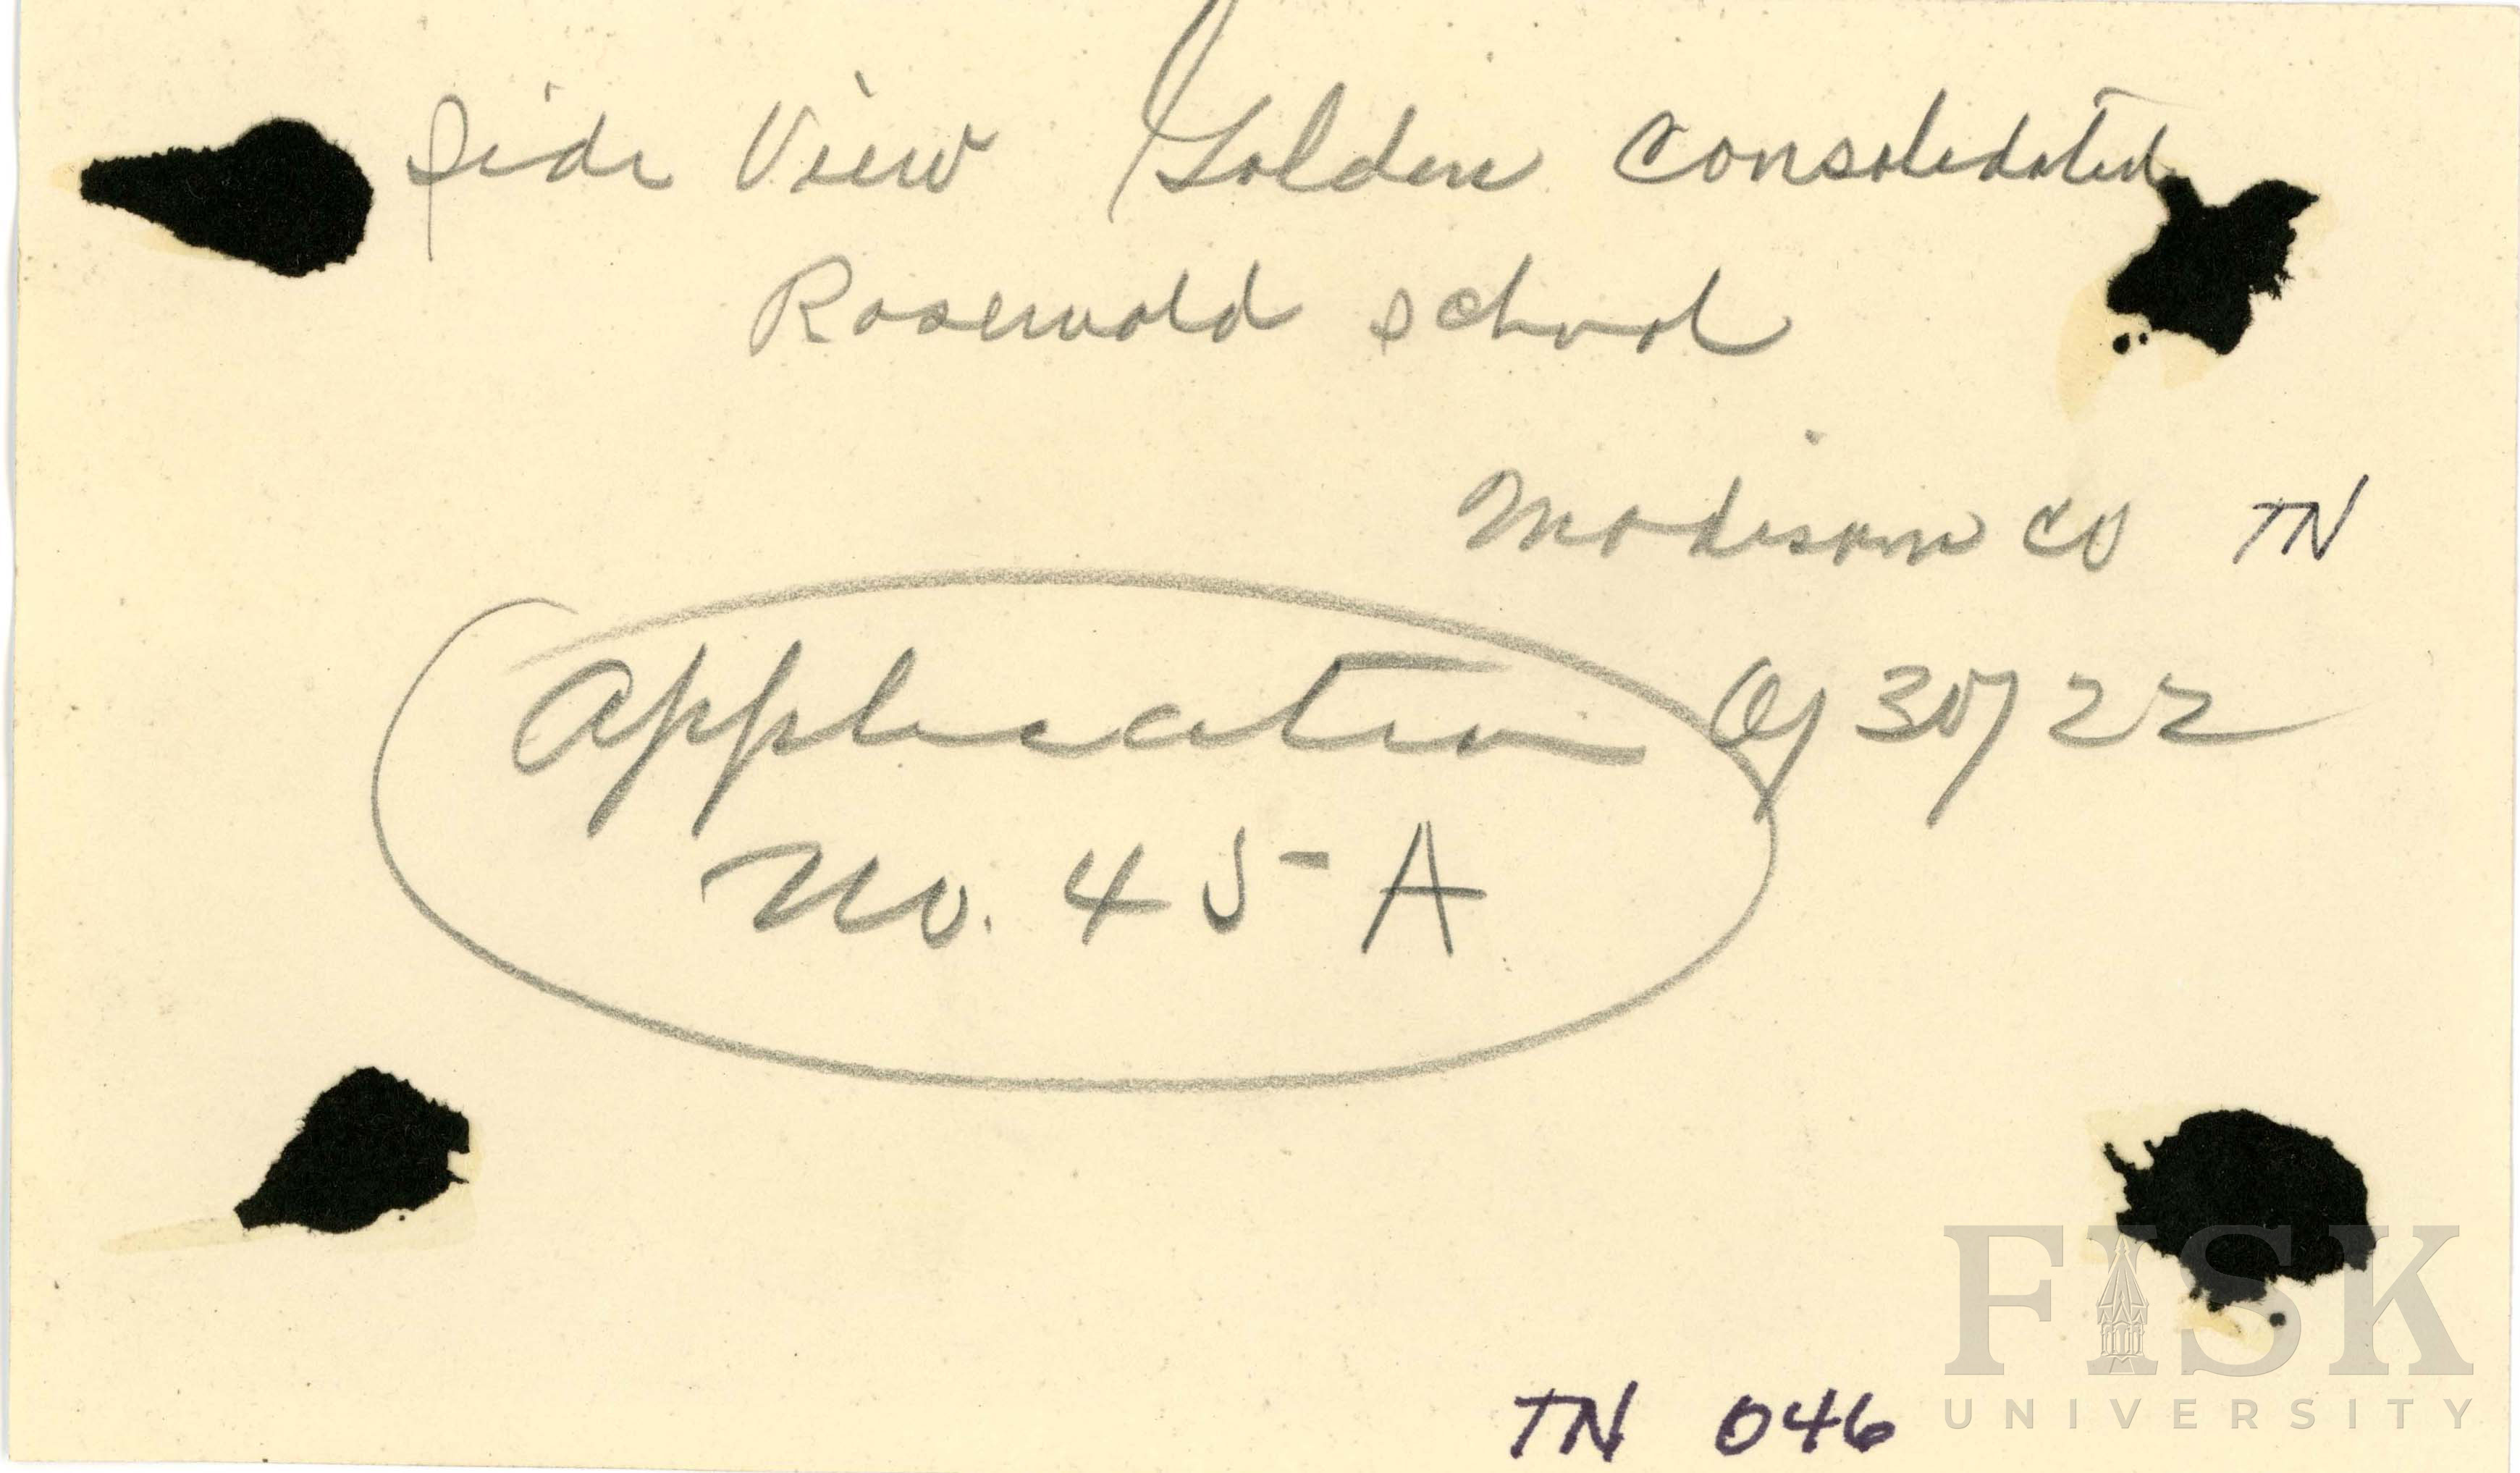 Side View Golden Consolidated
Rosenwald school
Madison Co TN
Application
No. 45-A
TN 046
FISK
UNIVERSITY